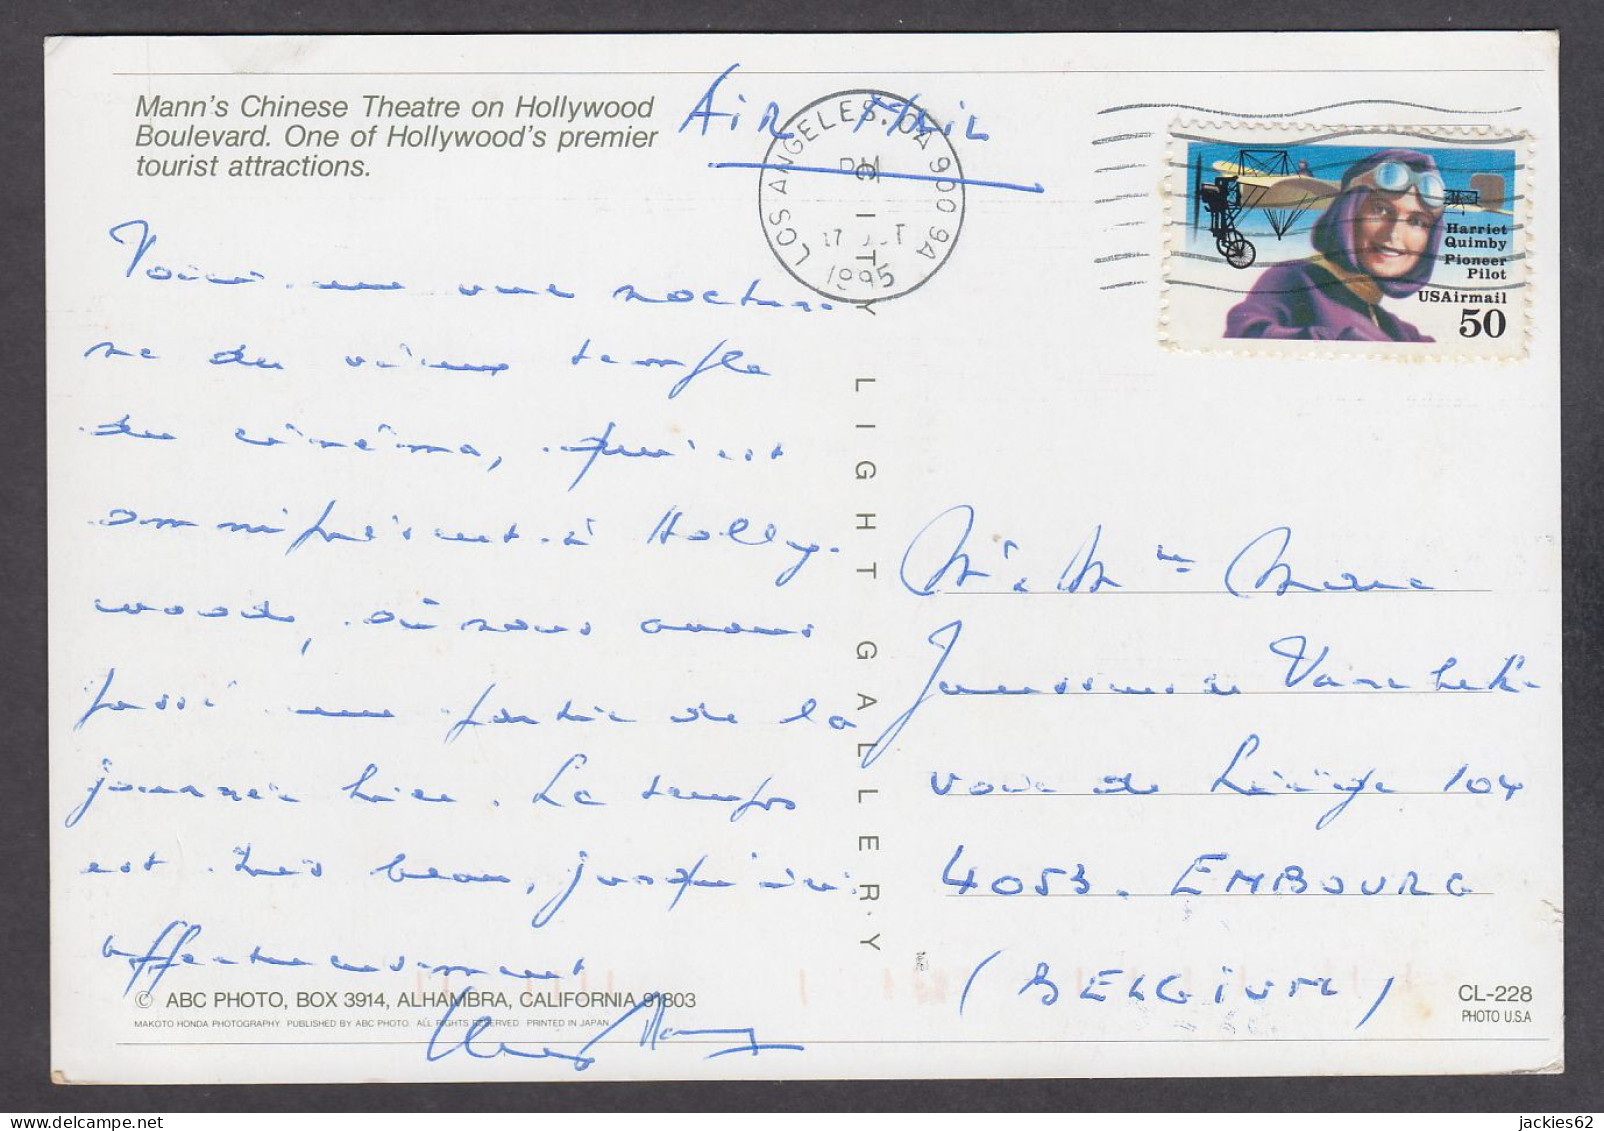 Mann's Chinese Theatre on Hollywood
Boulevard. One of Hollywood's premier
tourist attractions.
Air Mail
LOS ANGELES, CA 900 9A
PM
17 OCT
1995
Harriet
Quimby
Pioneer
Pilot
USAirmail
50
Voici une vue noctur-
ne du vieux temple
du cinéma, qui est
omniprésent à Holly-
wood, où nous avons
passé une partie de la
journée hier. Le temps
est très beau, jusqu'ici.
Affectueusement
CITY LIGHT GALLERY
Mr & Mme Marc
Janssens
voie de Liège 104
4053 . EMBOURG
(BELGIUM)
© ABC PHOTO, BOX 3914, ALHAMBRA, CALIFORNIA 91803
MAKOTO HONDA PHOTOGRAPHY PUBLISHED BY ABC PHOTO. ALL RIGHTS RESERVED PRINTED IN JAPAN
CL-228
PHOTO U.S.A
jackies62